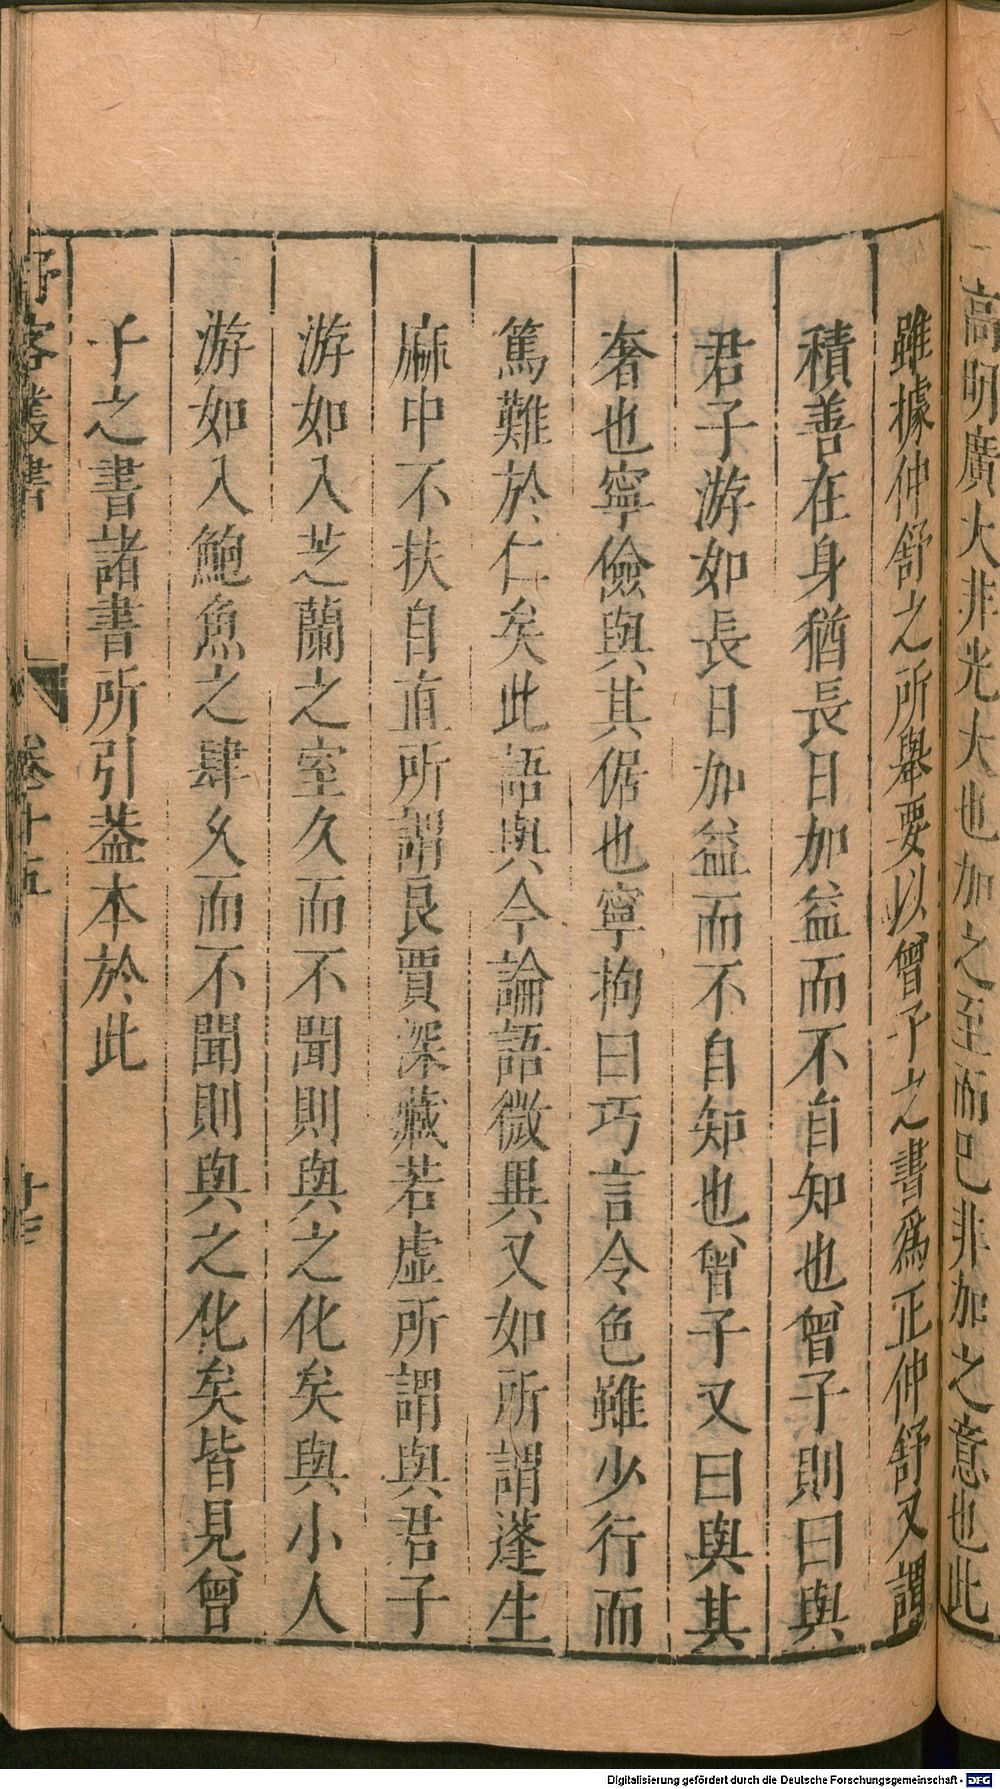 高明廣大非光大也加之至而已非加之意也此
雖據仲舒之所舉要以曾子之書爲正仲舒又謂
積善在身猶長日加益而不自知也曾子則曰與
君子游如長日加益而不自知也曾子又曰與其
奢也寧儉與其倨也寧拘曰巧言令色雖少行而
篤難於仁矣此語與今論語微異又如所謂蓬生
麻中不扶自直所謂良賈深藏若虛所謂與君子
游如入芝蘭之室久而不聞則與之化矣與小人
游如入鮑魚之肆久而不聞則與之化矣皆見曾
子之書諸書所引蓋本於此
野客叢書
卷十五
Digitalisierung gefördert durch die Deutsche Forschungsgemeinschaft - DFG